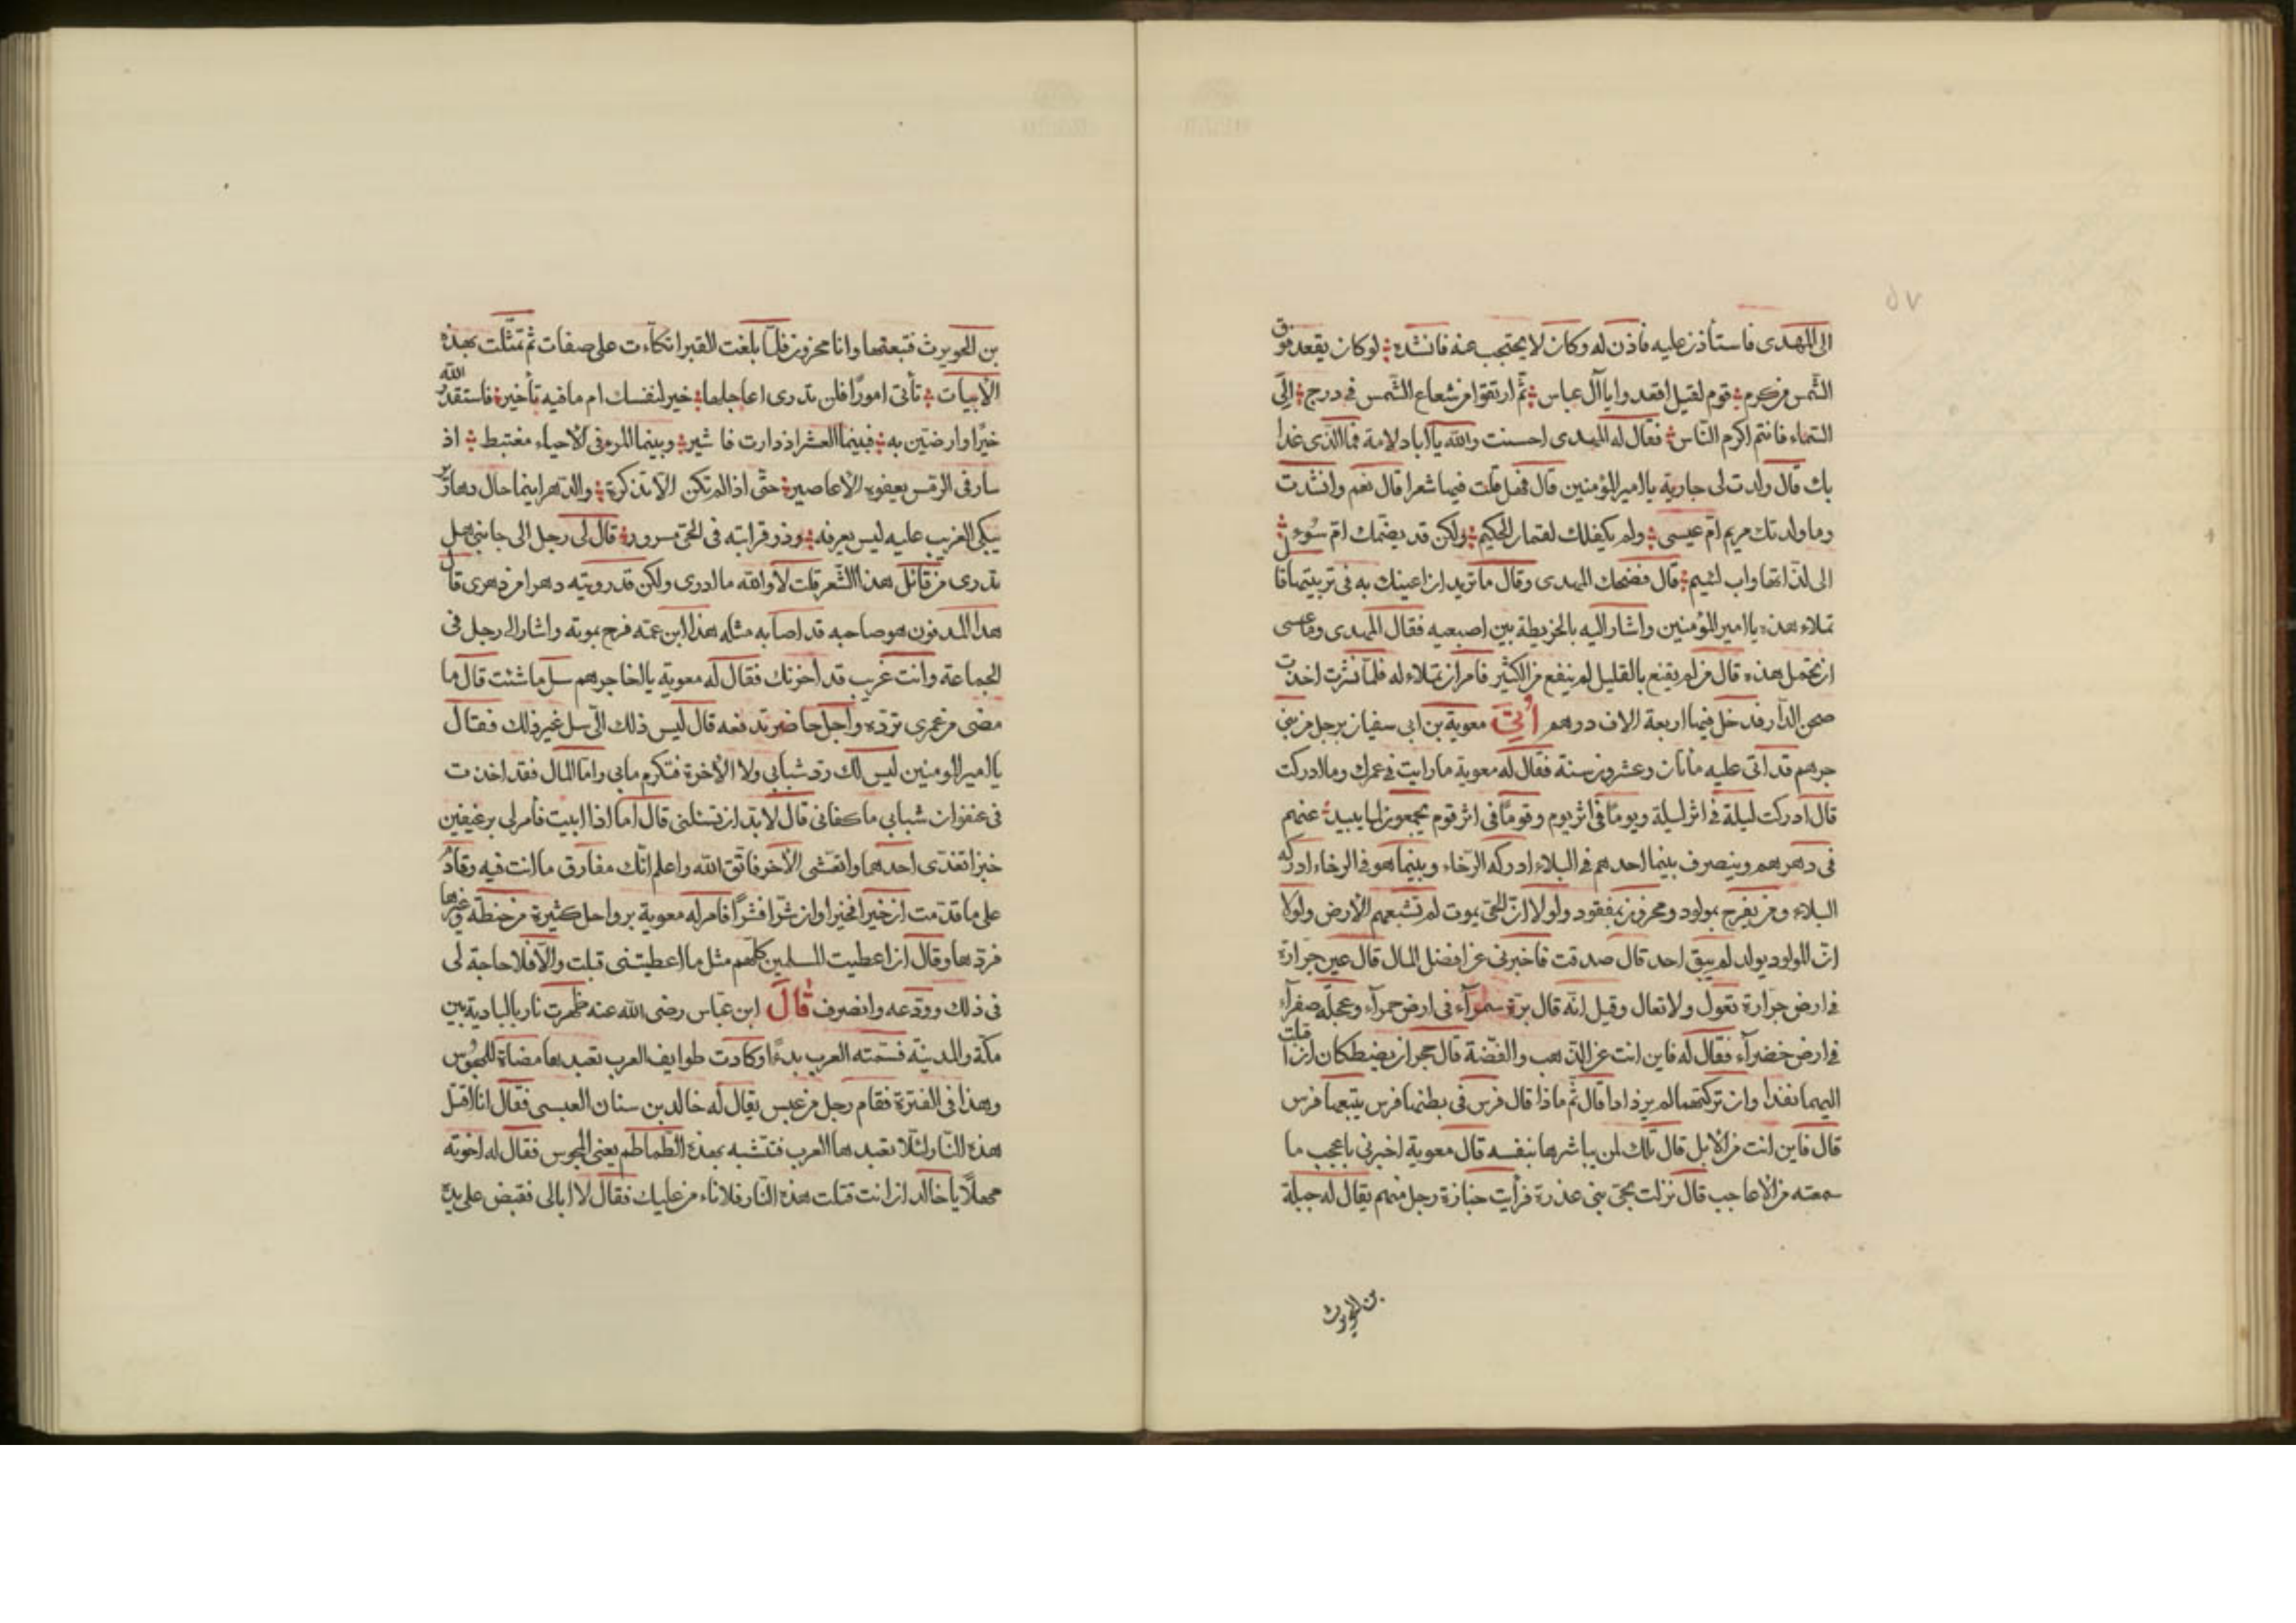 الى المهدى فاستأذن عليه فاذن له وكان لا يحتجب عنه فانشده لو كان يقعد فوق
الشمس من كرم قوم لقيل اقعدوا يا آل عباس ثم ارتقوا من شعاع الشمس فى درج الى
السماء فانتم اكرم الناس فقال له المهدى احسنت والله يا ابا دلامة فما الذى غدا
بك قال ولدت لى جارية يا امير المؤمنين قال فهل قلت فيها شعرا قال نعم وانشدت
وما ولدتك مريم ام عيسى ولم يكفلك لقمان الحكيم ولكن قد يضمك ام سوء
الى لذاتها واب لئيم قال فضحك المهدى وقال ما تريد ان اعينك به فى تربيتها قال
تملاء هذه يا امير المؤمنين واشار اليه بالخريطة بين اصبعيه فقال المهدى وما عسى
ان تحمل هذه قال من لم يقنع بالقليل لم ينفع من الكثير فامر ان تملاء له فلما نشرت اخذت
صحن الدار فدخل فيها اربعة الاف درهم أتى معوية بن ابى سفيان برجل من بنى
جرهم قد اتى عليه مأتان وعشرون سنة فقال له معوية ما رايت فى عمرك وما ادركت
قال ادركت ليلة فى اثر ليلة ويوما فى اثر يوم وقوما فى اثر قوم يجمعون لما يبيد عنهم
فى دهرهم وينصرف بينما احدهم فى البلاء ادركه الرخاء وبينما هو فى الرخاء ادركه
البلاء ومن يفرح بمولود ومحزون بمفقود ولولا ان الحى يموت لم تشبعهم الأرض ولولا
ان المولود يولد لم يبق احد قال صدقت فاخبرنى عن افضل المال قال عين جرارة
فى ارض جرارة تعول ولا تعال وقيل انه قال برة سمرآء فى ارض حمرآء وعجلة صفرآء
فى ارض خضرآء فقال له فاين انت عن الذهب والفضة قال حجران يضطكان ان اقبلت
اليهما نفدا وان تركتهما لم يزدادا قال ثم ماذا قال فرس فى بطنها فرس يتبعها فرس
قال فاين انت من الابل قال تلك لمن يباشرها بنفسه قال معوية اخبرنى باعجب ما
سمعته من الاعاجب قال نزلت بحى بنى عذرة فرأيت جنازة رجل منهم يقال له جبلة
بن الحويرث
بن الحويرث فتبعتها وانا محزون فلما بلغت القبر اتكاءت على صفات ثم تمثلت بهذه
الأبيات تأتى امورا فلن تدرى اعاجلها خير لنفسك ام ما فيه تأخير فاستقدر الله
خيرا وارضين به فبينما العشر اذ دارت مياشير وبينما المرء فى الأحياء مغتبط اذ
سار فى الرمس يعفوه الأعاصير حتى اذا لم تكن الا تذكرة والدهر اينما حال دهارير
يبكى الغريب عليه ليس يعرفه وذو قرابته فى الحى مسرور قال لى رجل الى جانبى هل
تدرى من قائل هذا الشعر قلت لا والله ما ادرى ولكن قد رويته دهرا من دهرى قال
هذا المدفون هو صاحبه قد اصابه مثله هذا ابن عمه فرح بموته واشار الى رجل فى
الجماعة وانت غريب قد احزنك فقال له معوية يا اخا جرهم سل ما شئت قال ما
مضى من عمرى تردّه واجل حاضر تدفعه قال ليس ذلك الّى سل غير ذلك فقال
يا امير المومنين ليس لك رد شبابى ولا الأخرة فتكرم مابى واما المال فقد اخذت
فى عنفوان شبابى ما كفانى قال لابد ان تسئلنى قال اما اذا ابيت فأمر لى برغيفين
خبز اتغدى احدهما واتعشى الأخر فاتق الله واعلم انك مفارق ما انت فيه وقادم
على ما قدمت ان خيرا فخيرا وان شرا فشرا فامر له معوية برواحل كثيرة من حنطة وغيرها
فردها وقال ان اعطيت المسلمين كلهم مثل ما اعطيتنى قبلت والا فلا حاجة لى
فى ذلك وودعه وانصرف قال ابن عباس رضى الله عنه ظهرت نار بالبادية بين
مكة والمدينة فسمته العرب بدءا وكادت طوايف العرب تعبدها مضاة للمجوس
وهذا فى الفترة فقام رجل من عبس يقال له خالد بن سنان العبسى فقال انا اقتل
هذه النار لئلا تعبدها العرب فتتشبه بهذه الطماطم يعنى المجوس فقال له اخوته
مهلا يا خالد ان انت قتلت هذه النار فلا ناءمن عليك فقال لا ابالى فقبض على يده